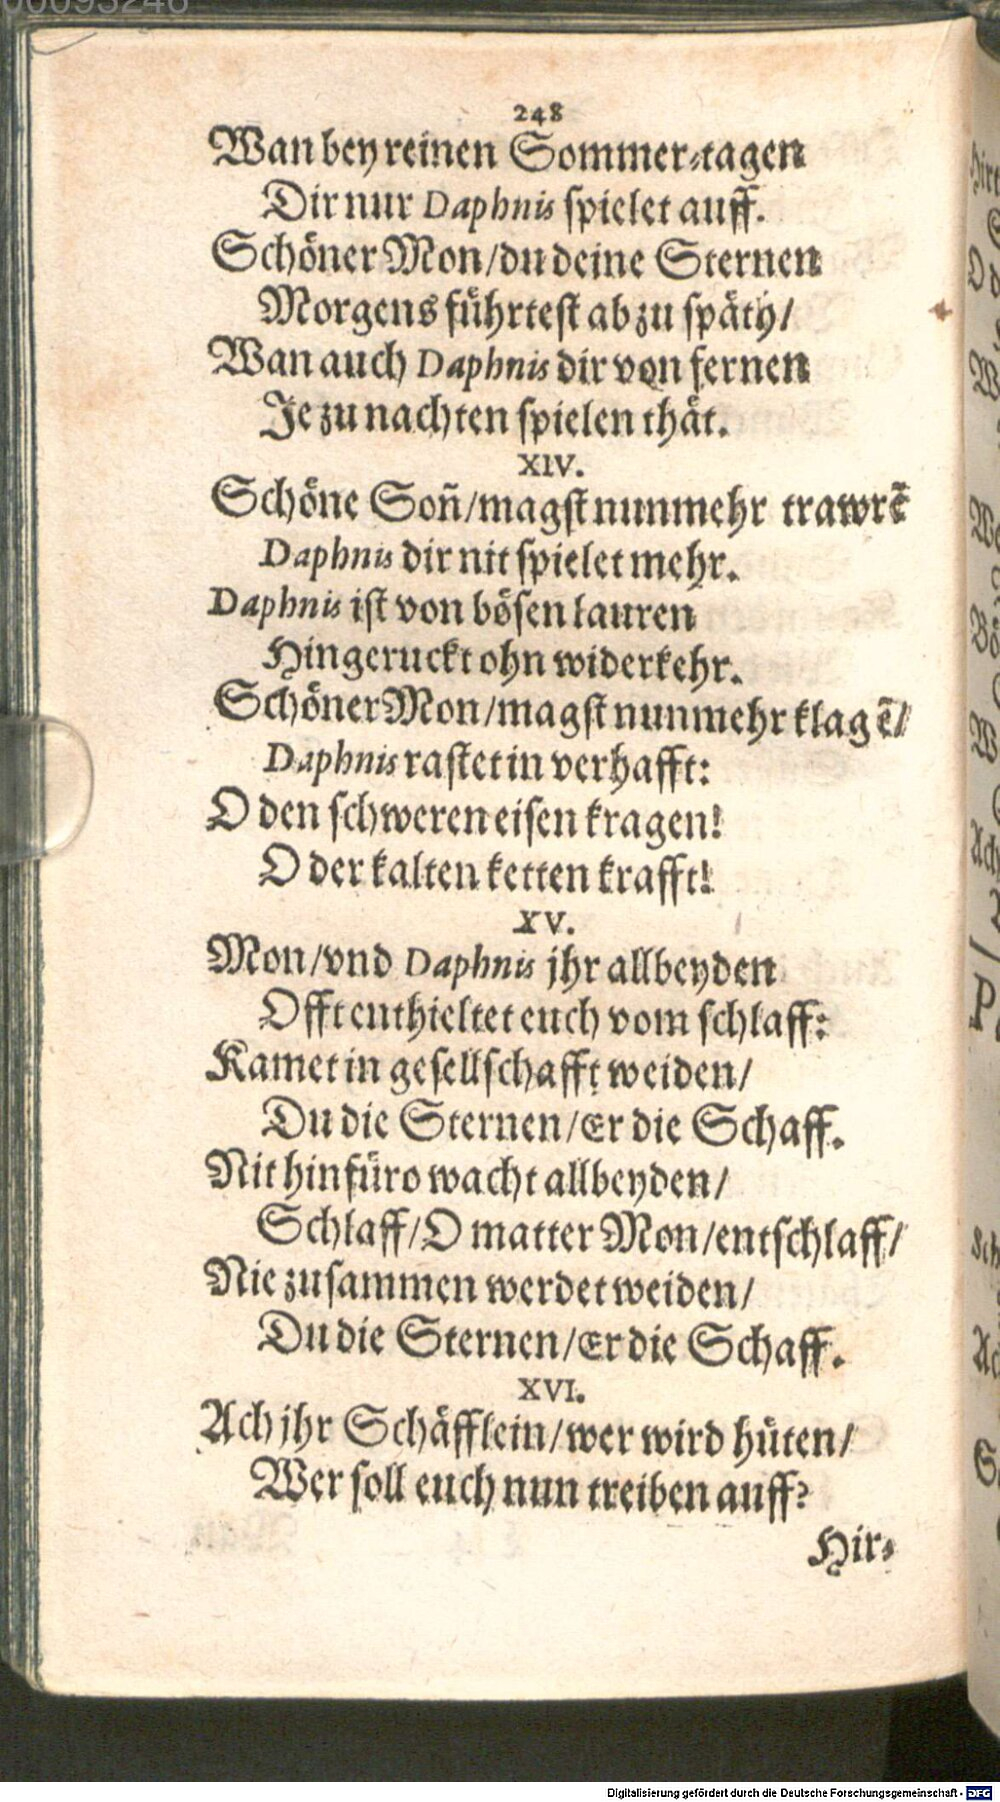 00095246
248
Wan bey reinen Sommer-tagen
Dir nur Daphnis spielet auff.
Schöner Mon/du deine Sternen
Morgens führtest ab zu späth/
Wan auch Daphnis dir von fernen
Je zu nachten spielen thät.
XIV.
Schöne Soñ/magst nunmehr trawrẽ
Daphnis dir nit spielet mehr.
Daphnis ist von bösen lauren
Hingeruckt ohn widerkehr.
Schöner Mon/magst nunmehr klagẽ/
Daphnis rastet in verhafft:
O den schweren eisen kragen!
O der kalten ketten krafft!
XV.
Mon/vnd Daphnis jhr allbeyden
Offt enthieltet euch vom schlaff:
Kamet in gesellschafft weiden/
Du die Sternen/Er die Schaff.
Nit hinfüro wacht allbeyden/
Schlaff/O matter Mon/entschlaff/
Nie zusammen werdet weiden/
Du die Sternen/Er die Schaff.
XVI.
Ach jhr Schäfflein/wer wird hüten/
Wer soll euch nun treiben auff?
Hir-
Digitalisierung gefördert durch die Deutsche Forschungsgemeinschaft - DFG